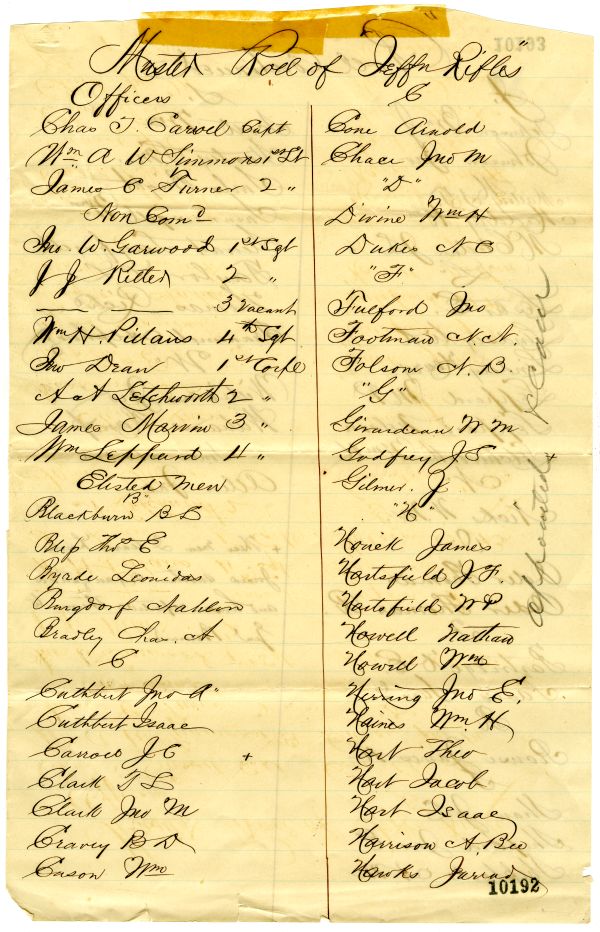 Muster Roll of Jeffn Rifles"
Officers
Chas T. Carvel Capt
Wm A W Simmons 1st Lt
James C Turner 2 "
Non Comd
Jno. W. Garwood 1st Sgt
J J Ritter 2 "
3 Vacant
Wm H. Pillans 4th Sgt
Jno Dean 1st Corpl
A A Letchworth 2 "
James Marvin 3 "
Wm Leppard 4 "
Elisted Men
"B"
Blackburn B L
Thos E
Byrde Leonidas
Burgdorf
Bradley Chas. A
C
Cuthbert Jno A"
Cuthbert Isaac
J C +
Clark T L
Clark Jno M
Cravey B D
Cason Wm
C
Cone Arnold
Chace Jno M
"D"
Divine Wm H
Dukes N C
"F"
Fulford Jno
Footman N. N.
Folsom N. B.
"G"
Girardeau W M
Godfrey J S +
Gilmer. J
"H"
Houck James
Hartsfield J. F.
Hartsfield W P
Howell Nathan
Howell Wm
Herring Jno E.
Haines Wm H
Hart Theo
Hart Jacob
Hart Isaac
Harrison A Bee
Hawks Jarrad
appointed
10192
10193